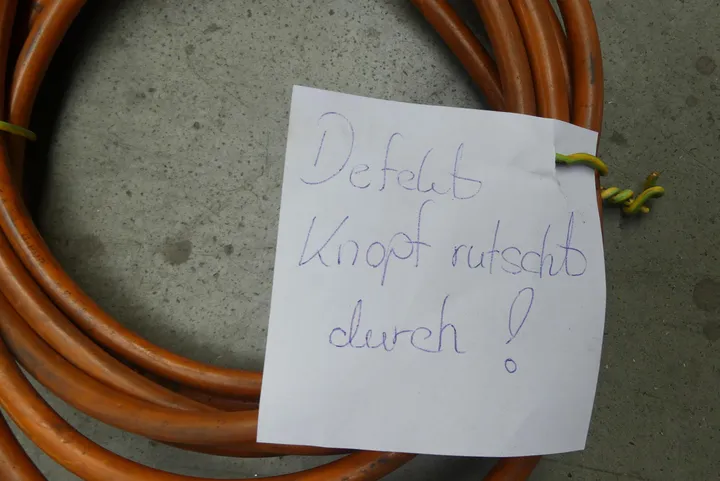 Defekt
Knopf rutscht
durch!